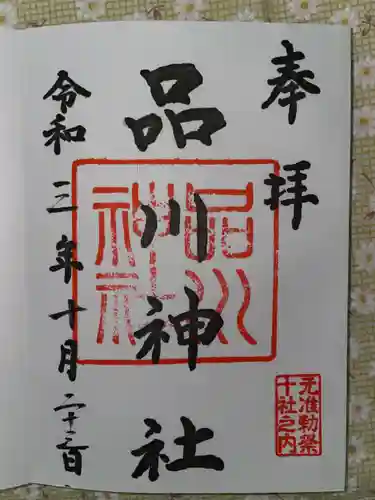 奉拝
品川神社
令和三年十月二十二日
品川神社
元准勅祭
十社之内